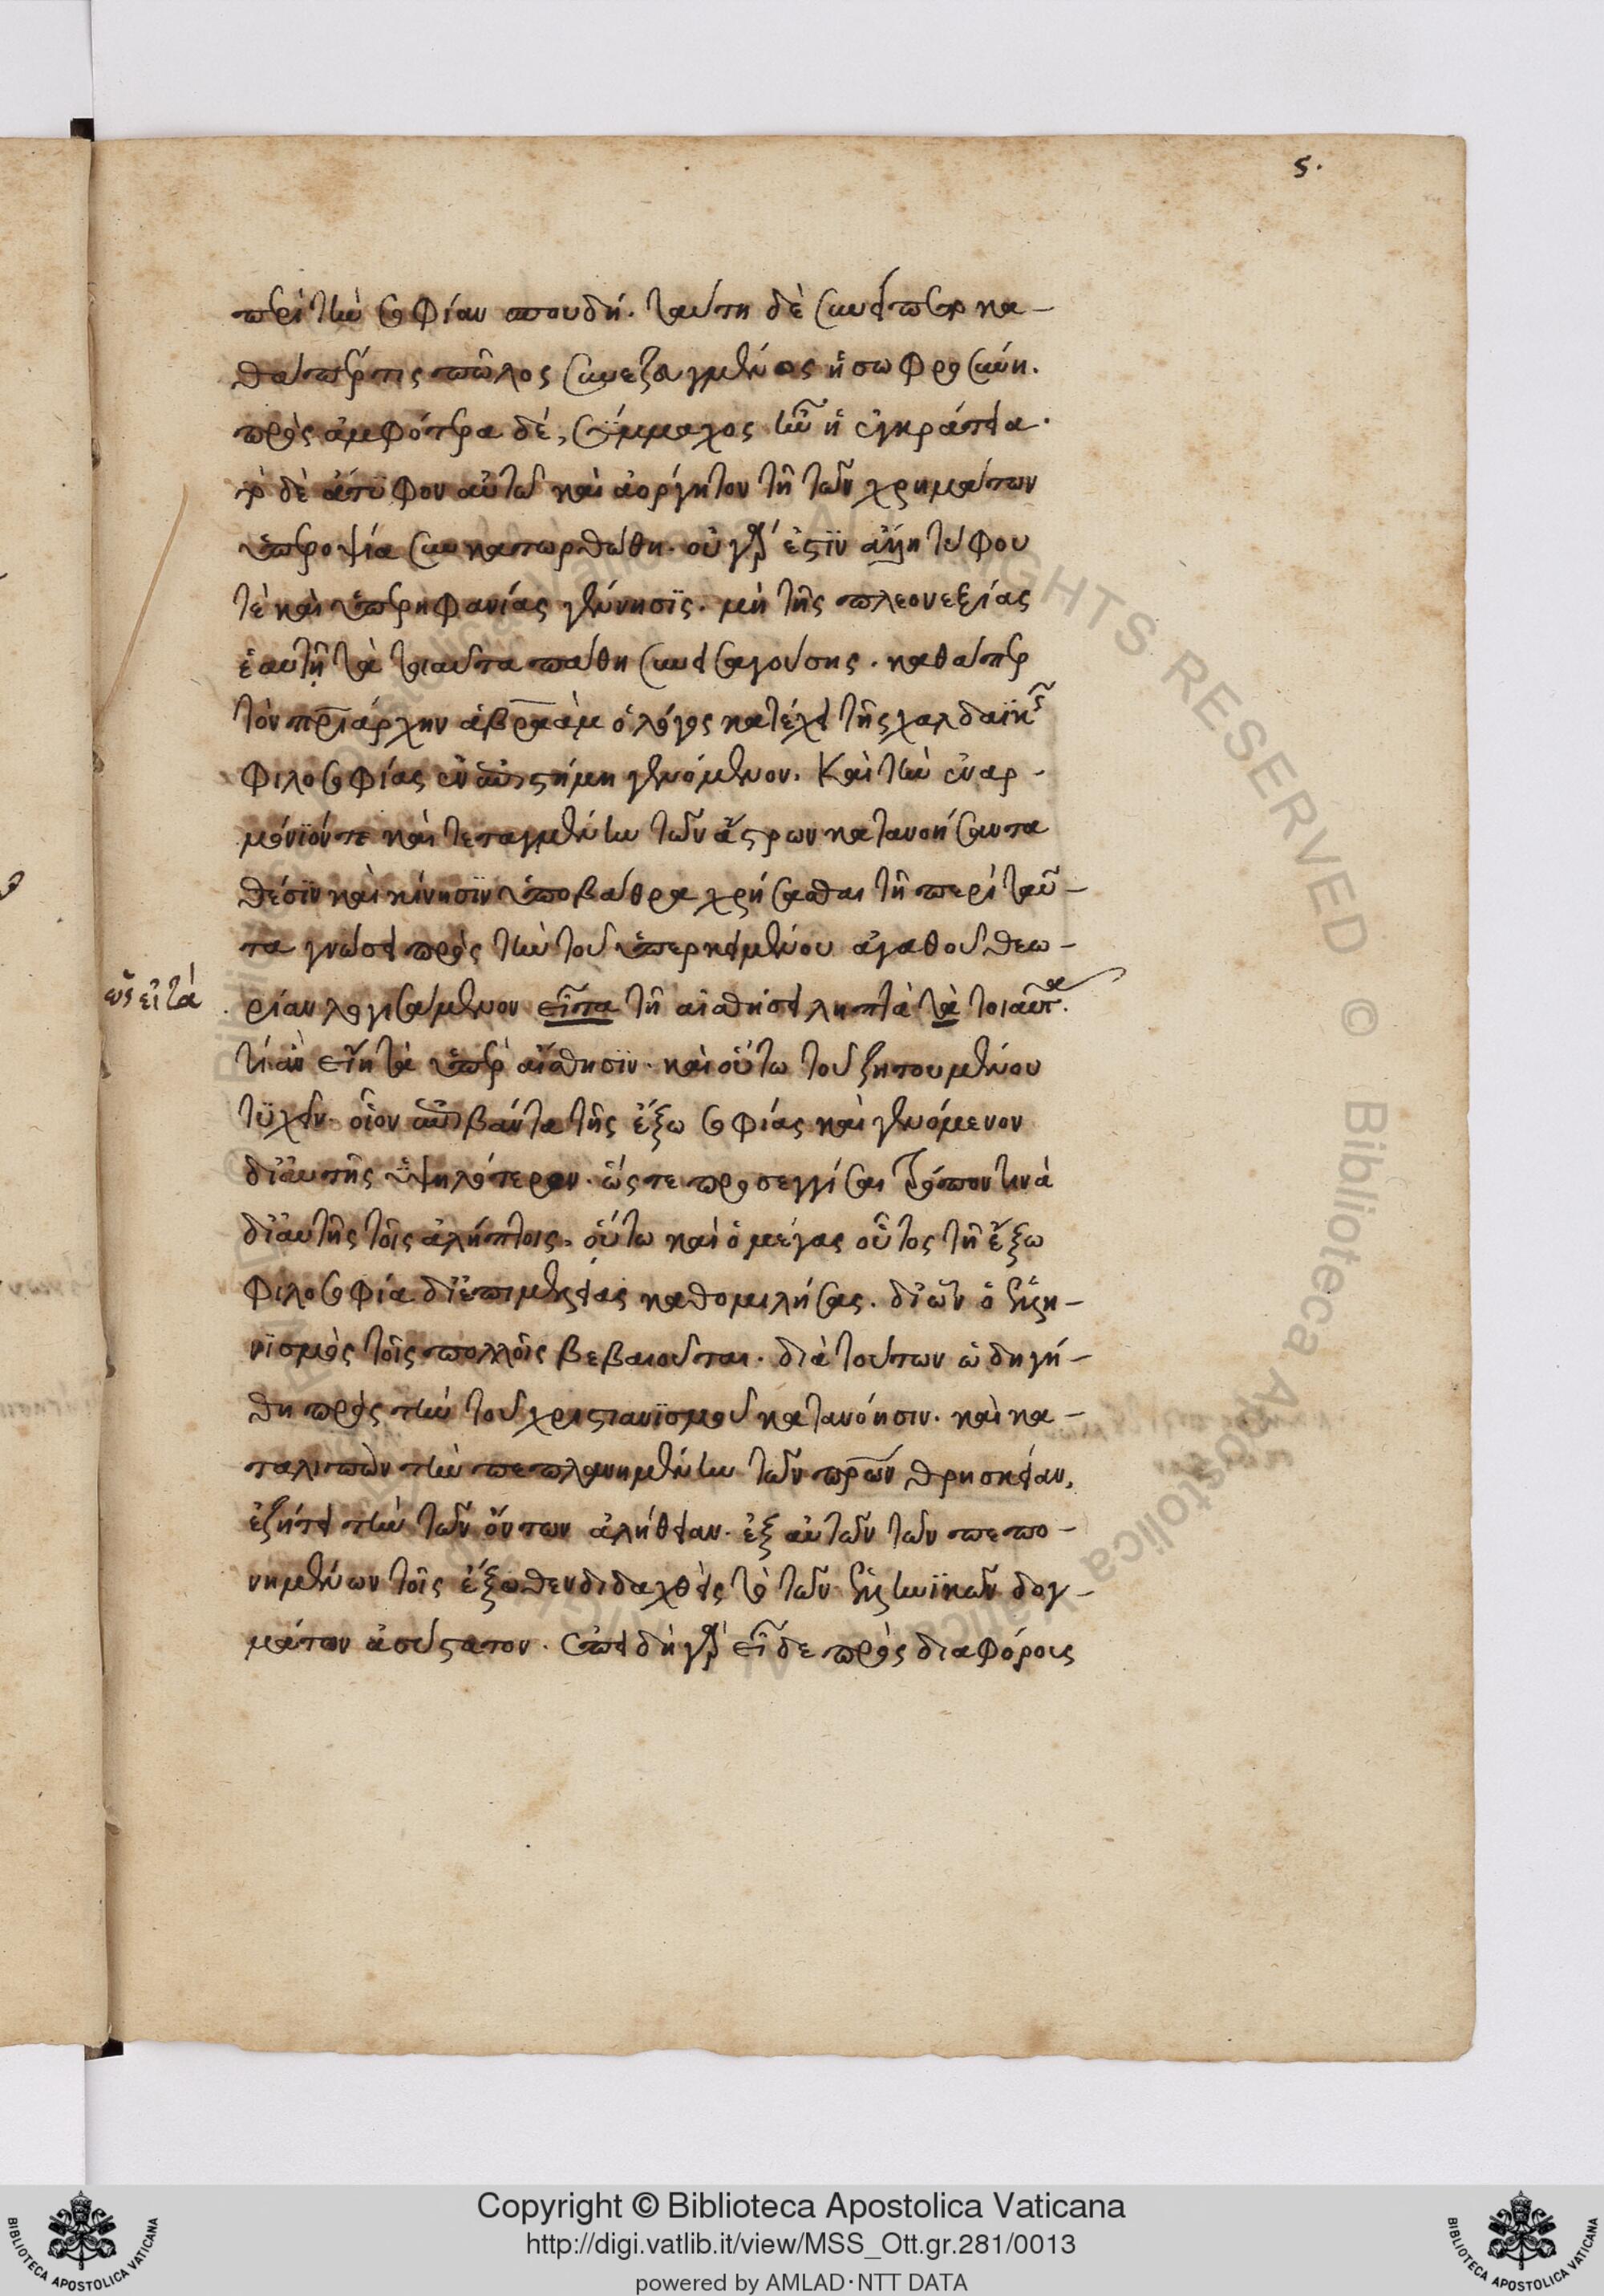 5.
περὶ τὴν σοφίαν σπουδή. ταύτη δὲ συνείπετο κα-
θάπέρ τις πῶλος συνεζευγμένος ἡ σωφροσύνη.
πρὸς ἀμφότερα δέ, σύμμαχος ἦν ἡ ἐγκράτεια.
τὸ δὲ ἄτυφον αὐτοῦ καὶ ἀόργητον τῇ τῶν χρημάτων
ὑπεροψία συγκατωρθώθη. οὐ γάρ ἐστιν ἄλλη τύφου
τὲ καὶ ὑπερηφανίας γέννησις. μὴ τῆς πλεονεξίας
ἑαυτῇ τὰ τοιαῦτα πάθη συνεισαγούσης. καθάπερ
τὸν πριάρχην ἀβραὰμ ὁ λόγος κατέχει τῆς χαλδαϊκῆς
φιλοσοφίας ἐν ἐπιστήμη γενόμενον. Καὶ τὴν ἐναρ-
μόνιόν τε καὶ τεταγμένην τῶν ἄστρων κατανοήσαντα
θέσιν καὶ κίνησιν ὑποβάθρα χρήσασθαι τῇ περὶ ταῦ-
τα γνώσει πρὸς τὴν τοῦ ὑπερκειμένου ἀγαθοῦ θεω-
ὡς εἰ τὰ
ρίαν λογισάμενον εἶτα τῇ αἰσθήσει ληπτὰ τὰ τοιαῦτα.
τί ἂν εἴη τὰ ὑπὲρ αἴσθησιν. καὶ οὕτω τοῦ ζητουμένου
τυχεῖν. οἷον ἐπιβάντα τῆς ἔξω σοφίας καὶ γενόμενον
δι' αὐτῆς ὑψηλότερον. ὥστε προσεγγίσαι τρόπον τινὰ
δι' αὐτῆς τοῖς ἀλήπτοις. οὕτω καὶ ὁ μέγας οὗτος τῇ ἔξω
φιλοσοφία δι' ἐπιμελείας καθομιλήσας. δι' ὧν ὁ ἑλλη-
νισμὸς τοῖς πολλοῖς βεβαιοῦται. διὰ τούτων ὡδηγή-
θη πρὸς τὴν τοῦ χριστιανισμοῦ κατανόησιν. καὶ κα-
ταλιπὼν τὴν πεπλανημένην τῶν πρων θρησκείαν,
ἐζήτει τὴν τῶν ὄντων ἀλήθειαν. ἐξ αὐτῶν τῶν πεπο-
νημένων τοῖς ἔξωθεν διδαχθεὶς τὸ τῶν ἑλληνικῶν δογ-
μάτων ἀσύστατον. ἐπειδὴ γὰρ εἶδε πρὸς διαφόροις
Copyright © Biblioteca Apostolica Vaticana
http://digi.vatlib.it/view/MSS_Ott.gr.281/0013
powered by AMLAD·NTT DATA
BIBLIOTECA APOSTOLICA VATICANA
BIBLIOTECA APOSTOLICA VATICANA